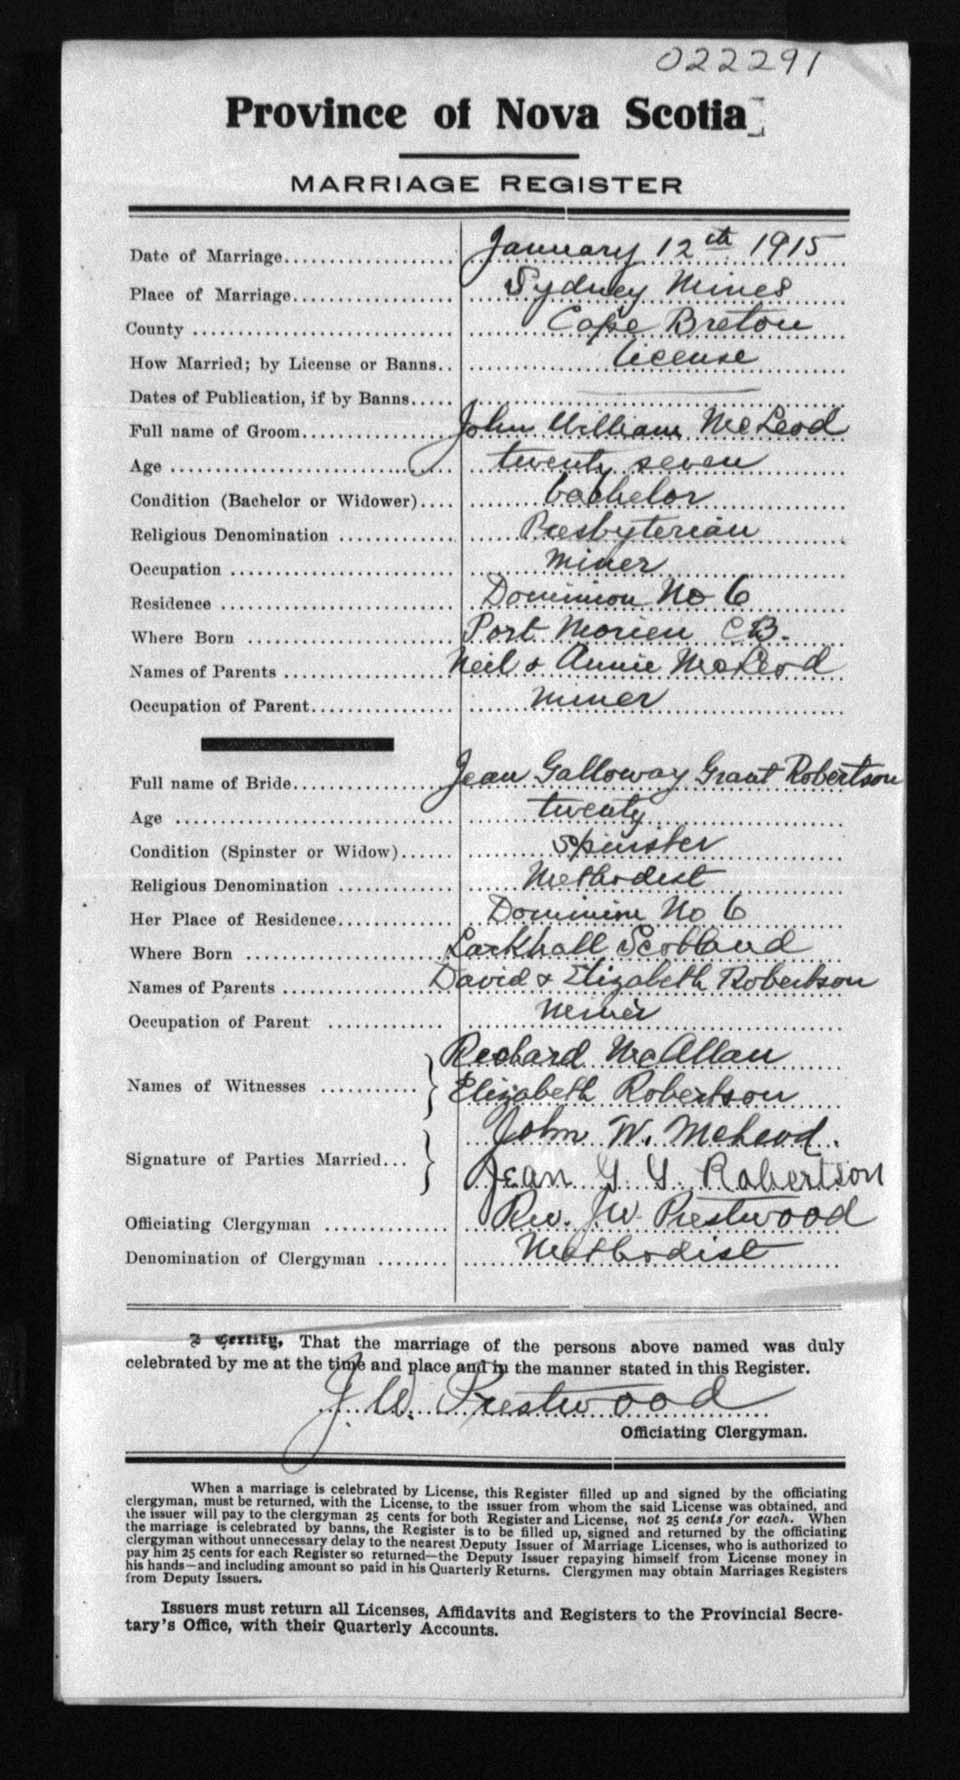 022291
Province of Nova Scotia
MARRIAGE REGISTER
Date of Marriage January 12th 1915
Place of Marriage Sydney Mines
County Cape Breton
How Married; by License or Banns license
Dates of Publication, if by Banns
Full name of Groom John William McLeod
Age twenty seven
Condition (Bachelor or Widower) bachelor
Religious Denomination Presbyterian
Occupation Miner
Residence Dominion No 6
Where Born Port Morien C.B.
Names of Parents Neil & Annie McLeod
Occupation of Parent miner
Full name of Bride Jean Galloway Grant Robertson
Age twenty
Condition (Spinster or Widow) Spinster
Religious Denomination Methodist
Her Place of Residence Dominion No 6
Where Born Larkhall Scotland
Names of Parents David & Elizabeth Robertson
Occupation of Parent
Richard McAllan
Names of Witnesses
Elizabeth Robertson
John W. McLeod.
Signature of Parties Married...
Jean G G Robertson
Officiating Clergyman Rev. J W Prestwood
Denomination of Clergyman Methodist
I Certify, That the marriage of the persons above named was duly
celebrated by me at the time and place and in the manner stated in this Register.
J. W. Prestwood
Officiating Clergyman.
When a marriage is celebrated by License, this Register filled up and signed by the officiating
clergyman, must be returned, with the License, to the issuer from whom the said License was obtained, and
the issuer will pay to the clergyman 25 cents for both Register and License, not 25 cents for each. When
the marriage is celebrated by banns, the Register is to be filled up, signed and returned by the officiating
clergyman without unnecessary delay to the nearest Deputy Issuer of Marriage Licenses, who is authorized to
pay him 25 cents for each Register so returned—the Deputy Issuer repaying himself from License money in
his hands—and including amount so paid in his Quarterly Returns. Clergymen may obtain Marriages Registers
from Deputy Issuers.
Issuers must return all Licenses, Affidavits and Registers to the Provincial Secre-
tary's Office, with their Quarterly Accounts.